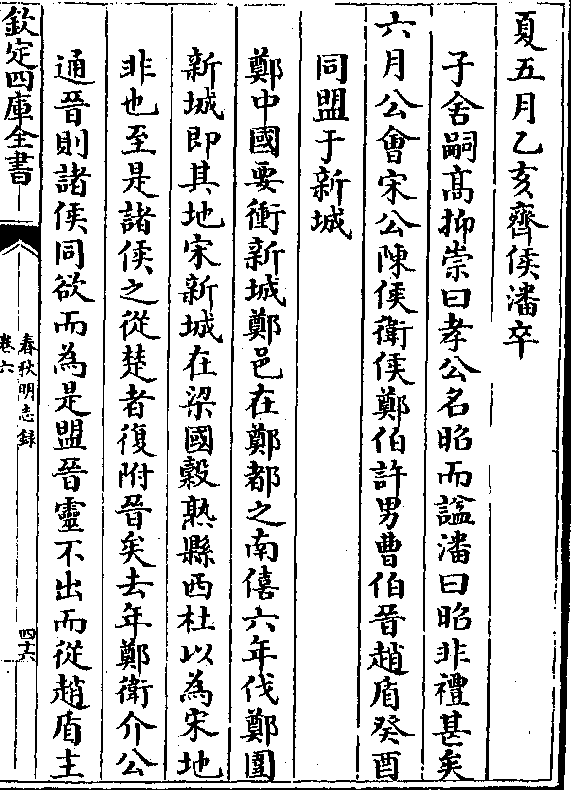 夏五月乙亥齊侯潘卒
子舍嗣髙抑崇曰孝公名昭而諡潘曰昭非禮甚矣
六月公會宋公陳侯衛侯鄭伯許男曹伯晉趙盾癸酉
同盟于新城
鄭中國要衝新城鄭邑在鄭都之南僖六年伐鄭圍
新城即其地宋新城在梁國榖熟縣西杜以為宋地
非也至是諸侯之從楚者復附晉矣去年鄭衛介公
通晉則諸侯同欲而為是盟晉靈不出而從趙盾主
欽定四庫全書
春秋明志録
卷六
四十六